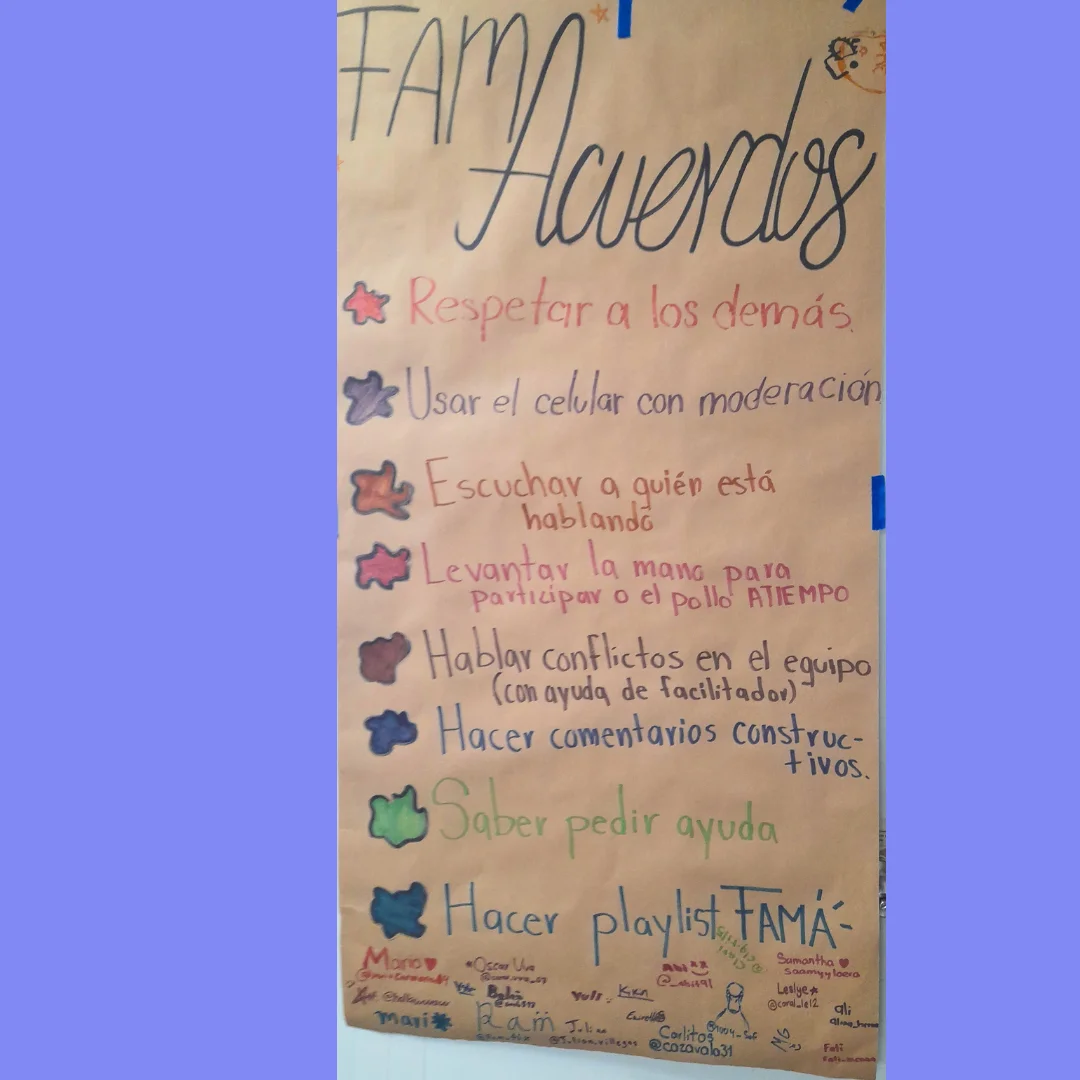 FAMA
Acuerdos
Respetar a los demás.
Usar el celular con moderación
Escuchar a quién está
hablando
Levantar la mano para
participar o el pollo ATIEMPO
Hablar conflictos en el equipo
(con ayuda de facilitador)
Hacer comentarios construc-
tivos.
Saber pedir ayuda
Hacer playlist FAMÁ
Oscar Uva
Samantha
saamyylaera
Abi
Leslye
@coral_le12
Yuli
ali
Mari
Ram
Julian
@Julian.villegas
Carlitos
@cazavala31
Fati